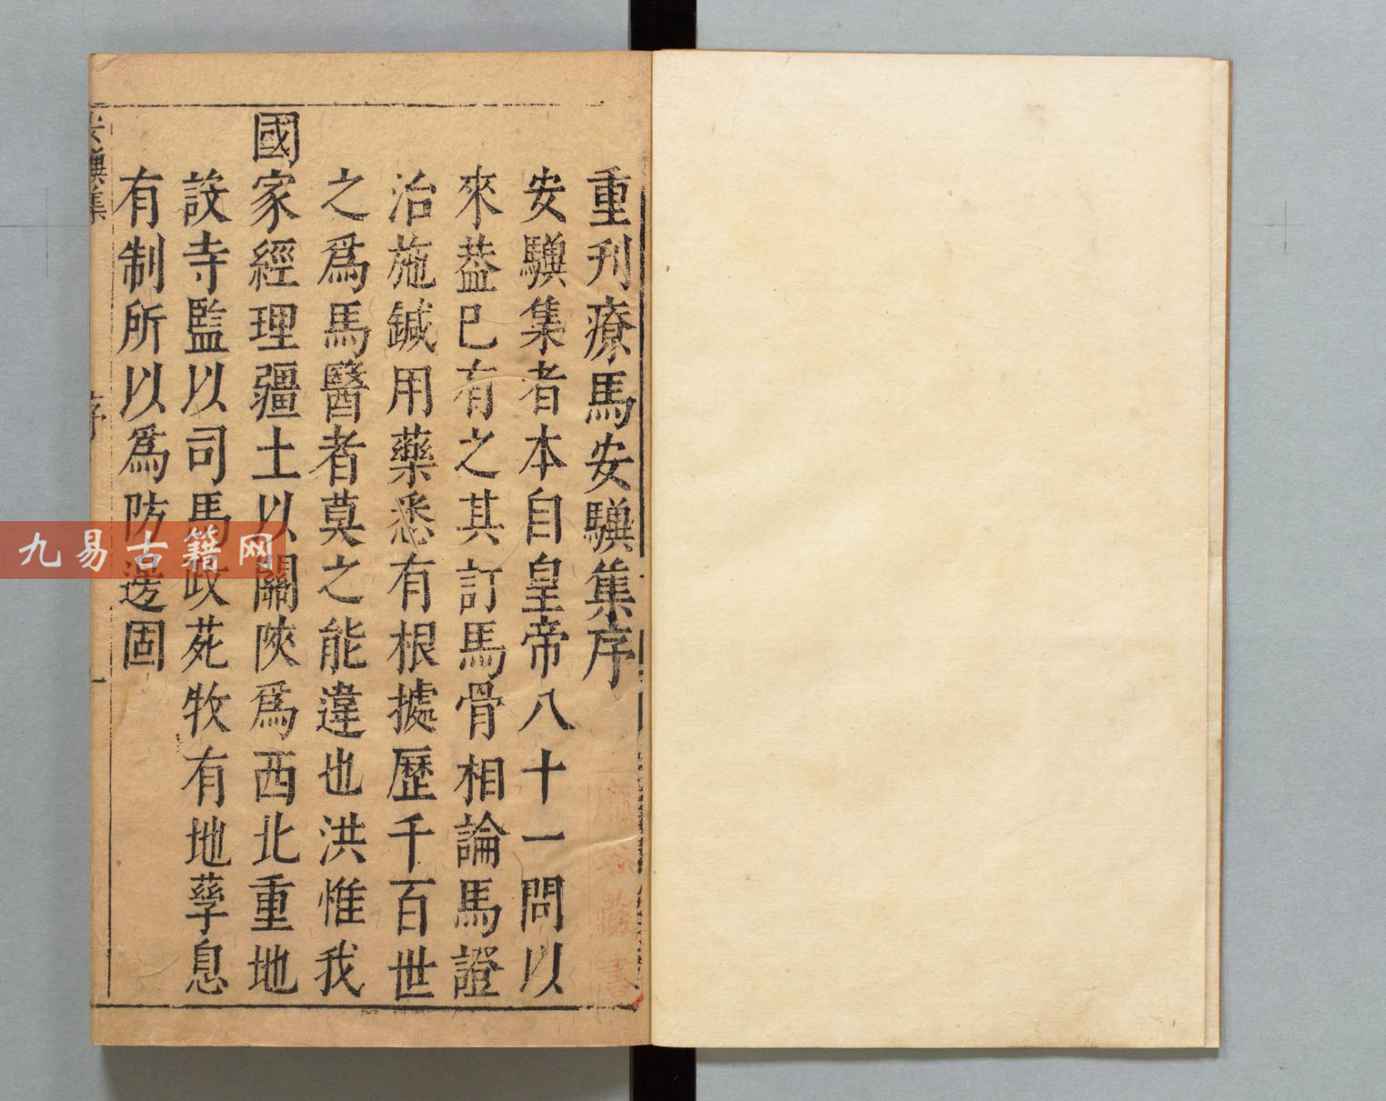 重刋療馬安驥集序
安驥集者本自皇帝八十一問以
來葢巳有之其訂馬骨相論馬證
治施鍼用藥悉有根據歷千百世
之爲馬醫者莫之能違也洪惟我
國家經理疆土以關陜爲西北重地
設寺監以司馬政苑牧有地孳息
有制所以爲防邊固
安驥集
序
一
九易古籍网